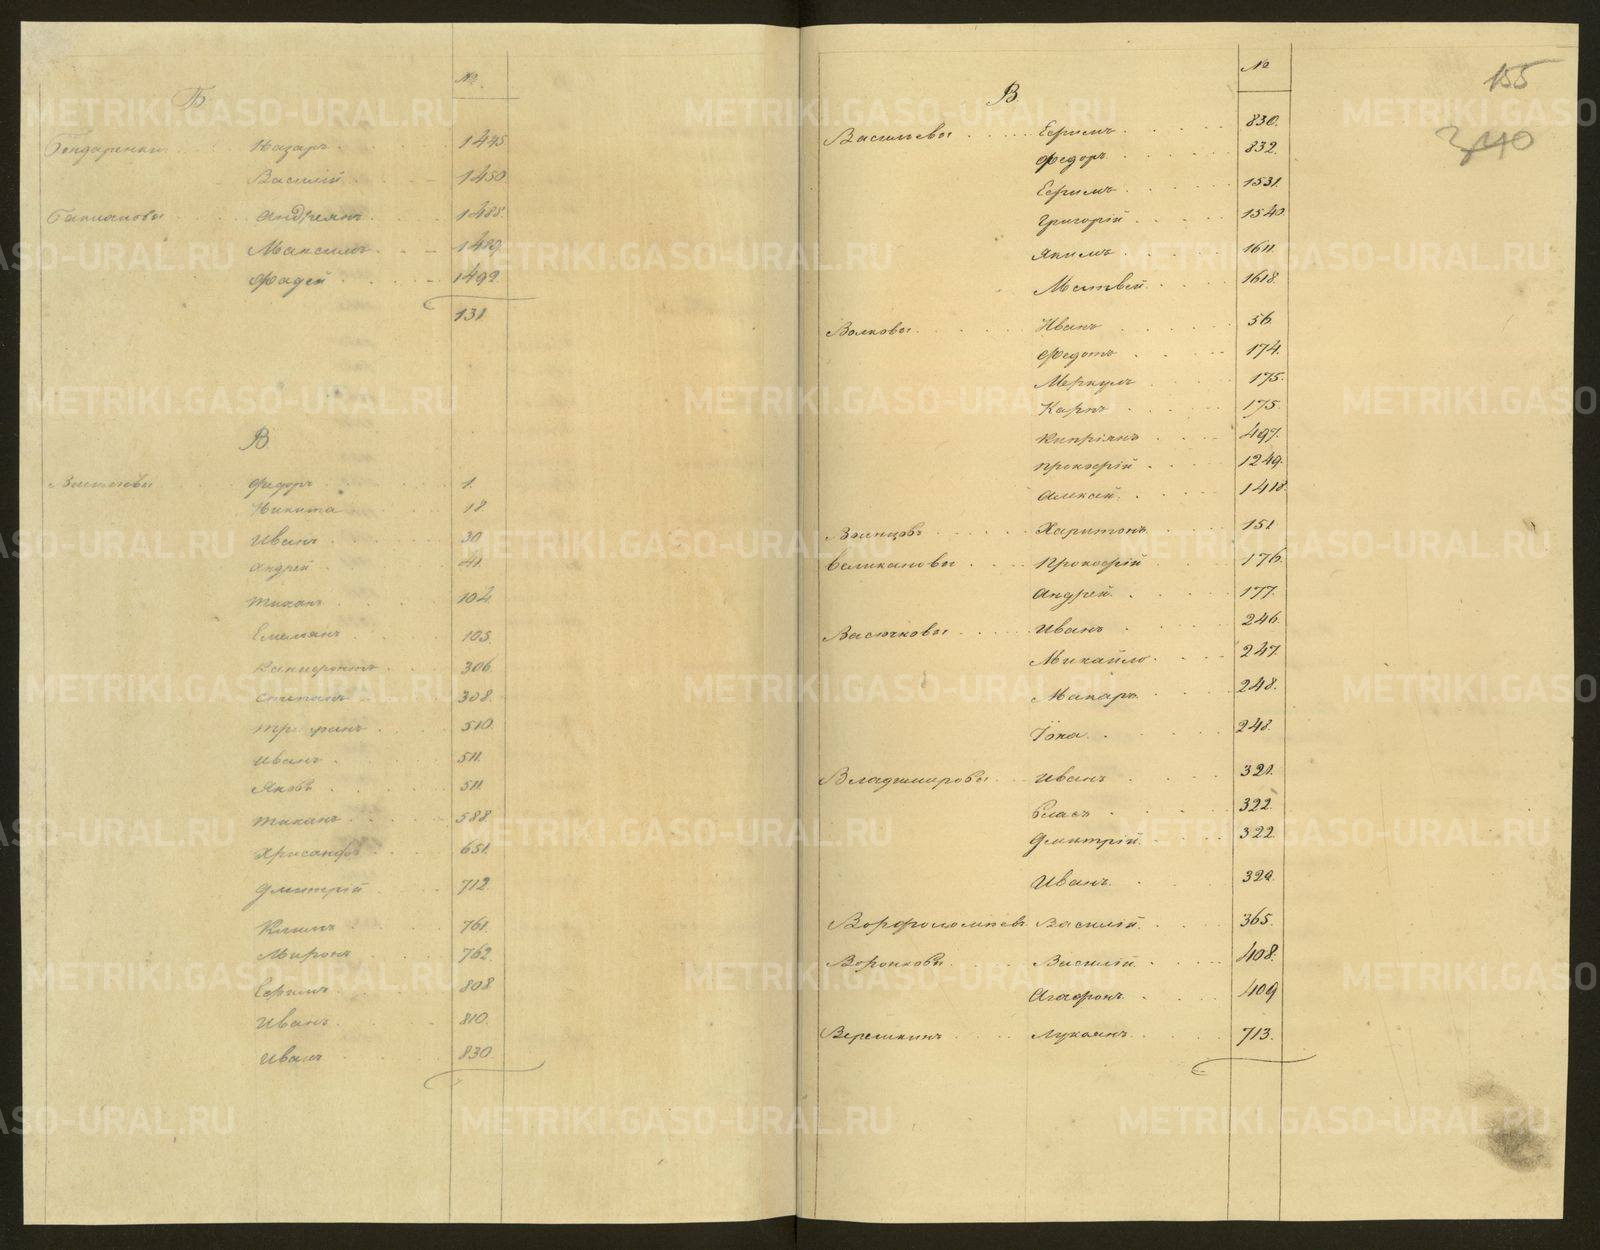 №
Б
Бондаренки Назаръ 1445
Василій 1450
Андреянъ 1488.
Максимъ 1489.
Фадей 1492
131
В
Васильевы Федоръ 1.
Никита 18
Иванъ 30
Андрей 41.
Тиханъ 104.
Емельянъ 105.
306.
Степанъ 308.
510.
Иванъ 511.
Яковъ 511.
Тиханъ 588.
Хрисанфъ 651.
Дмитрій 712.
Климъ 761.
Миронъ 762.
Ефимъ 808
Иванъ 810.
Иванъ 830.
155
340
№
В
Васильевы Ефимъ 830.
Федоръ 832.
Ефимъ 1531.
Григорій 1540.
Якимъ 1611.
Матвей 1618.
Волковы Иванъ 56.
Федотъ 174.
Меркулъ 175.
Карпъ 175.
Кипріянъ 497.
Прокофій 1249.
Алексей 1418.
Харитонъ 151.
Великановы Прокофій 176.
Андрей 177.
Васючковы Иванъ 246.
Михайло 247.
Макаръ 248.
Іона 248.
Владимировы Иванъ 321.
Власъ 322.
Дмитрій 322.
Иванъ 322.
Ворфоломеевъ Василій 365.
Воронковы Василій 408.
Агафонъ 409
Веремкинъ Лукоянъ 713.
METRIKI.GASO-URAL.RU